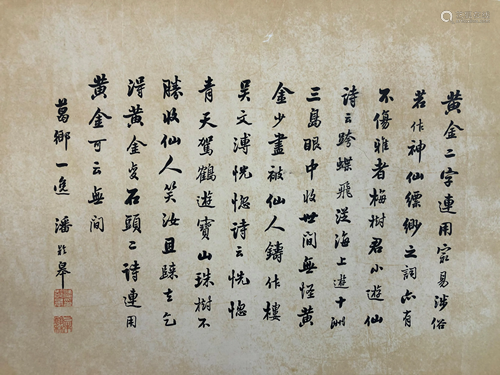 黃金二字連用㝡易涉俗
若作神仙縹緲之詞亦有
不傷雅者梅樹君小遊仙
詩云跨蝶飛從海上遊十洲
三島眼中收世間無怪黃
金少盡被仙人鑄作樓
吳文溥恍惚詩云恍惚
青天駕鶴遊寶山珠樹不
勝收仙人笑汝且踩去乞
得黃金變石頭二詩連用
黃金可云無間
葛鄉一逸潘齡皋